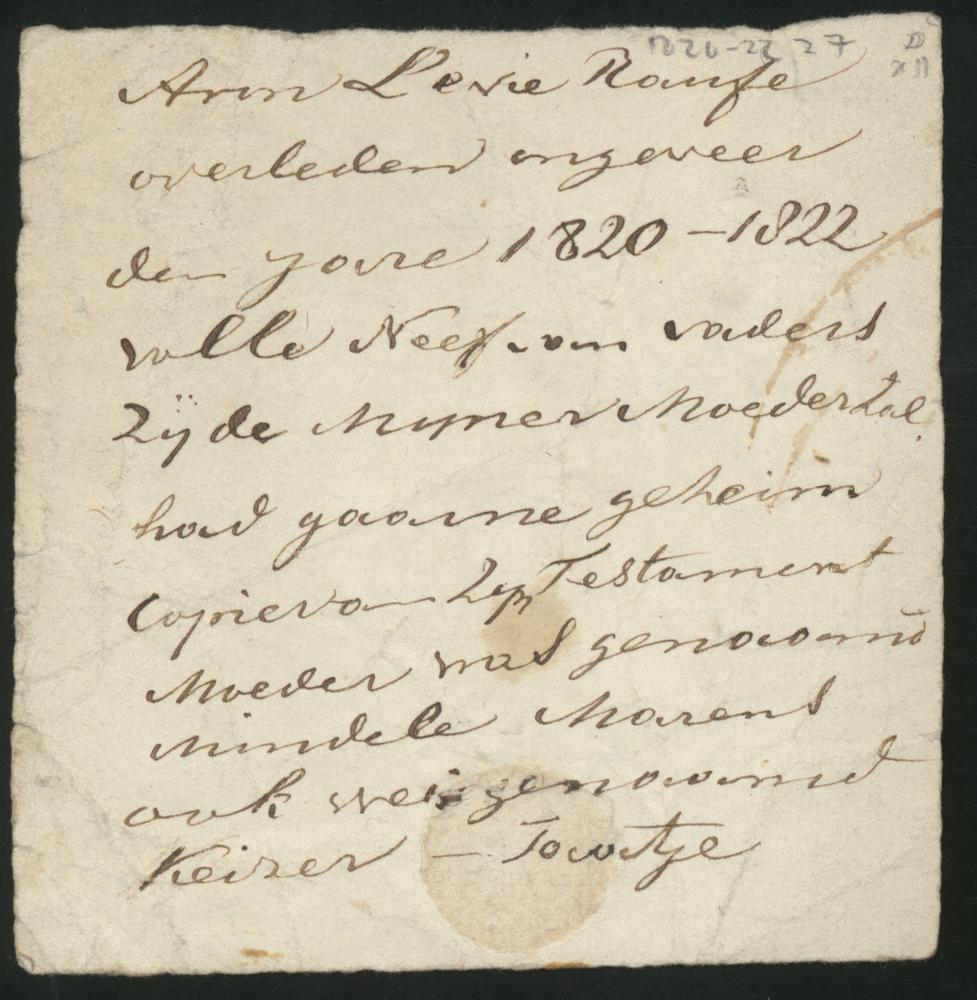 1820-22 27
D
XII
Aron Levie Raufe
overleden ongeveer
den Jare 1820 - 1822
volle Neef van vaders
Zÿde Mijner Moeder Zal.
had gaarne geheim
Copie van Zijn Testament
Moeder was genaamd
Mindele Marens
ook wel genaamd
Keizer -